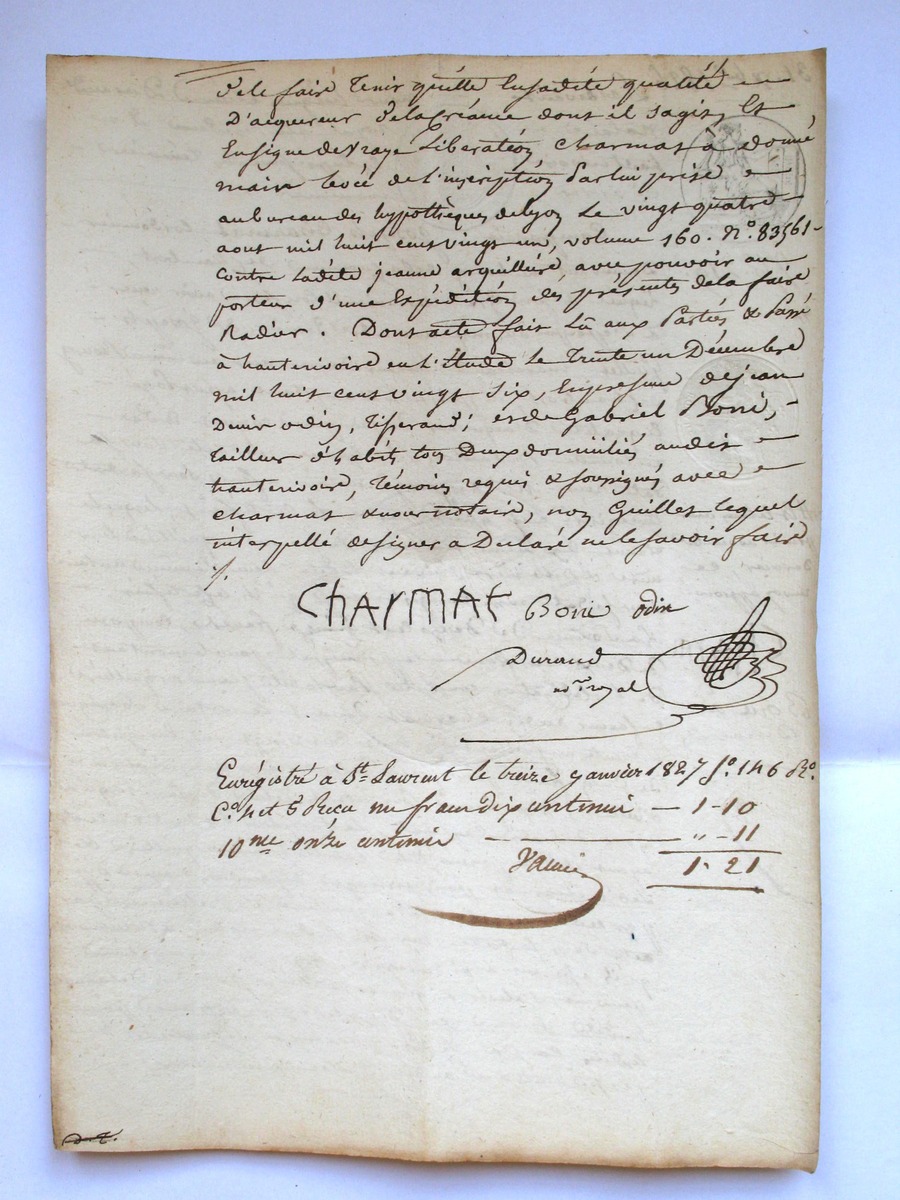 de le faire tenir quitte en sadite qualité
D'acquereur de la Créance dont il sagit, Et
En signe de vraye Libération Charmat à donné
main levée de l'inscription Par lui prise
au bureau des hypothèques de Lyon Le vingt quatre
aout mil huit cent vingt un, volume 160. N.º 83561
Contre Ladite jeanne arquillière, avec pouvoir au
porteur d'une Expédition des présentes de la faire
Radier. Dont acte fait Lû aux Parties & Passé
à hauterivoire en L'étude le Trente un Décembre
mil huit cent vingt six, En presence de jean
Denis odin, Tisserand; et de Gabriel Boni,
Tailleur d'habits tous Deux domiciliés audit
hauterivoire, Témoins requis & soussignés avec
Charmat & nous notaire, non Guillet lequel
interpellé de signer a Déclaré ne le savoir faire
/.
CHArMAT Boni odin
Durand
no.re royal
Enrégistré à St Laurent le treize janvier 1827 fº. 146 Rº.
C.º 4 et 5 Reçu un franc dix centimes — 1-10
10me onze centimes — " - 11
1 - 21
D.T.